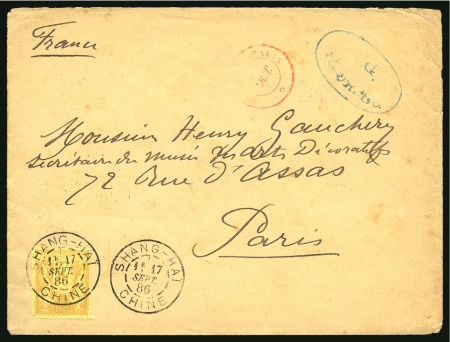 France
PARIS
Monsieur Henry Gauchery
Secrétaire du Musée des Arts Décoratifs
72 Rue d'Assas
Paris
SHANG-HAI
17
SEPT.
86
CHINE
SHANG-HAI
17
SEPT.
86
CHINE